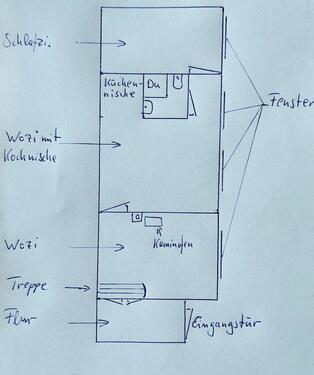 Schlafzi.
Küchen-
nische
Du
Fenster
Wozi mit
Kochnische
Wozi
Kaminofen
Treppe
Flur
Eingangstür